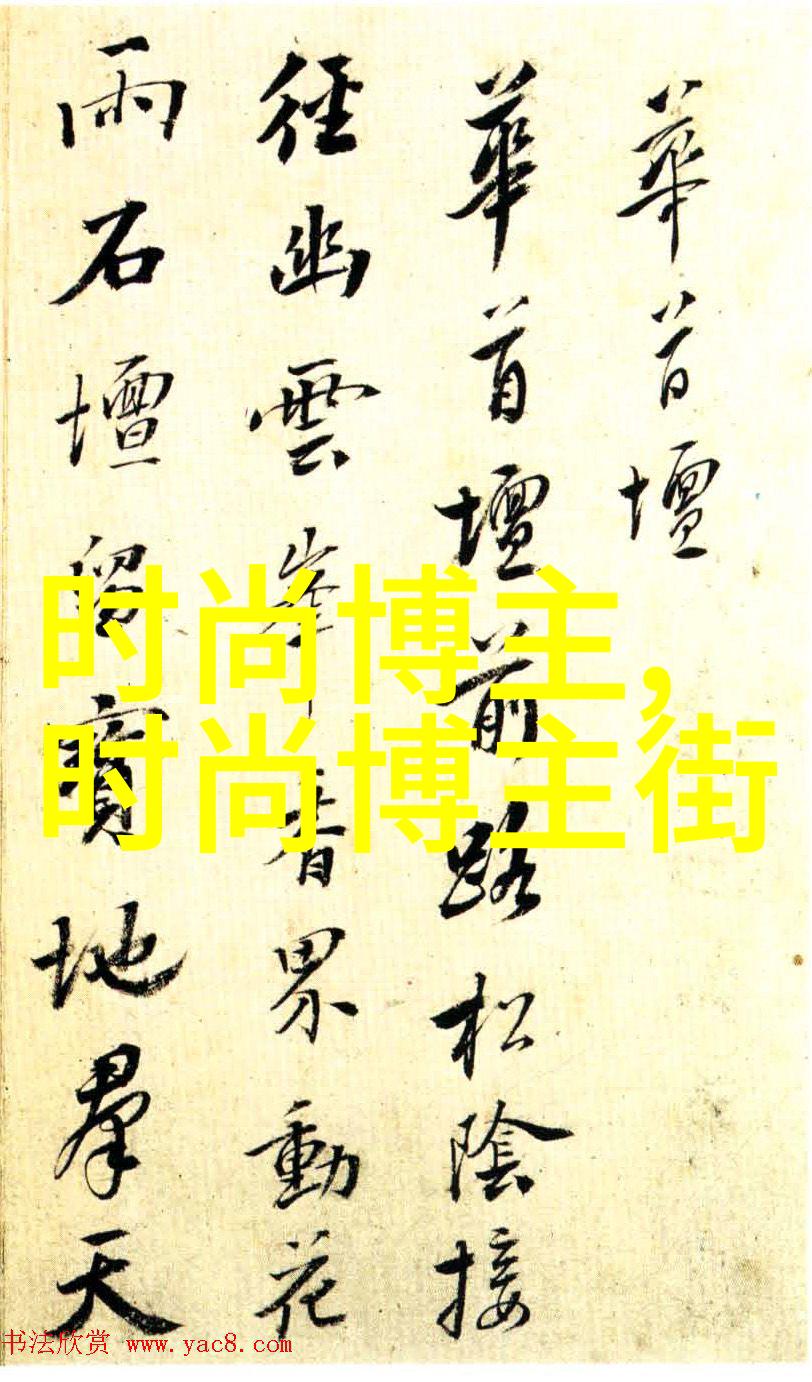 華首壇
華首壇前路松陰接
徑幽雲峰香界動花
雨石壇留寶地羣天
时尚博主,
时尚博主街
书法欣赏 www.yac8.com